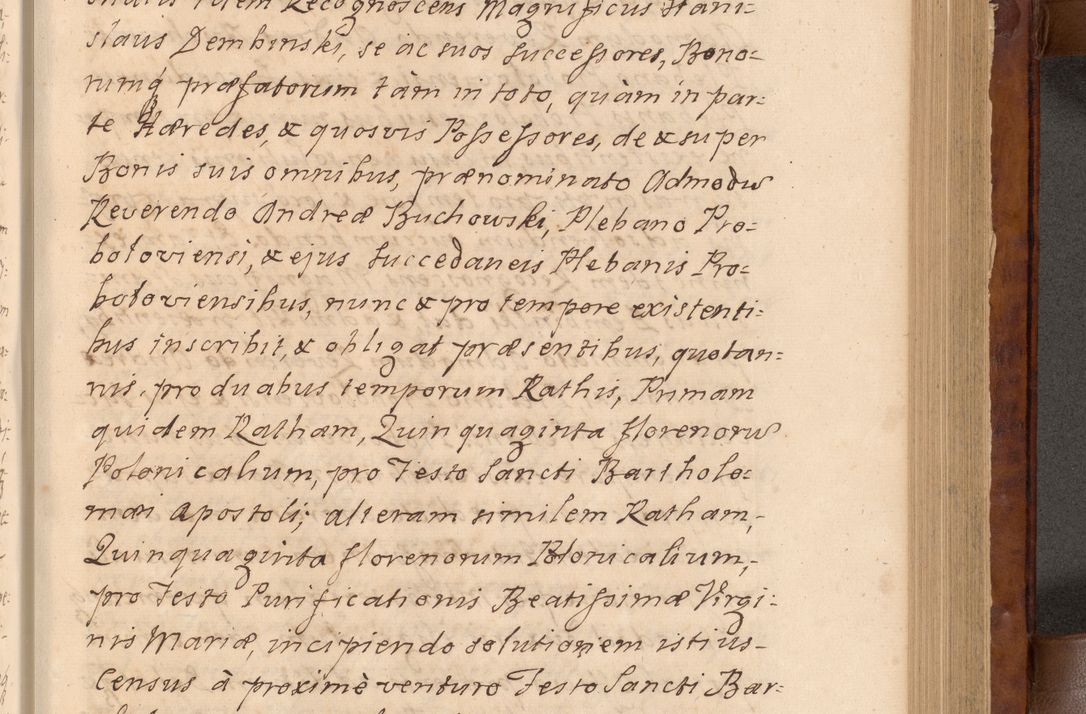 idem Recognoscens Magnificus Stani-
slaus Dembinski, se ac suos successores, Bono-
rumq́ præfatorum tàm in toto, quàm in par-
te Hæredes, & quosvis Possessores, de & super
Bonis suis omnibus, prænominato Admodũ
Reverendo Andreæ Buchowski, Plebano Pro-
boloviensi, & ejus Succedaneis Plebanis Pro-
boloviensibus, nunc & pro tempore existenti-
bus inscribit, & obligat præsentibus, quotan-
nis, pro duabus temporum Rathis, Primam
quidem Ratham, Quinquaginta florenorũ
Polonicalium, pro Festo Sancti Bartholo-
mæi Apostoli; alteram similem Ratham,
Quinquaginta florenorum Polonicalium,
pro Festo Purificationis Beatissimæ Virgi-
nis Mariæ, incipiendo solutionem istius
Census à proximè venturo Festo Sancti Bar-